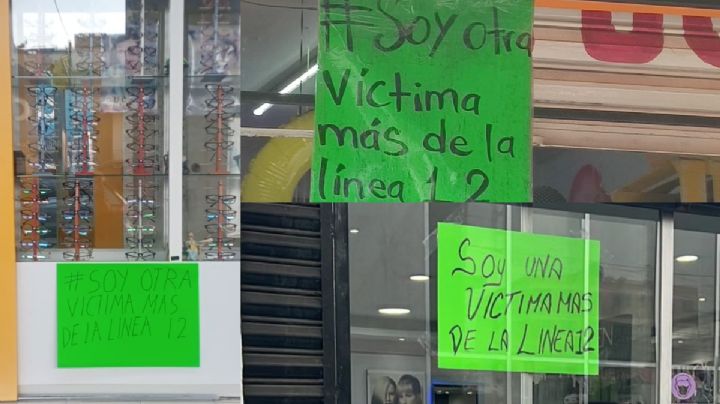 #SOY OTRA
VÍCTIMA MAS
DE LA LINEA 12
#Soy otra
Víctima
más de la
línea 12
SOY UNA
VICTIMA MAS
DE LA LINEA 12